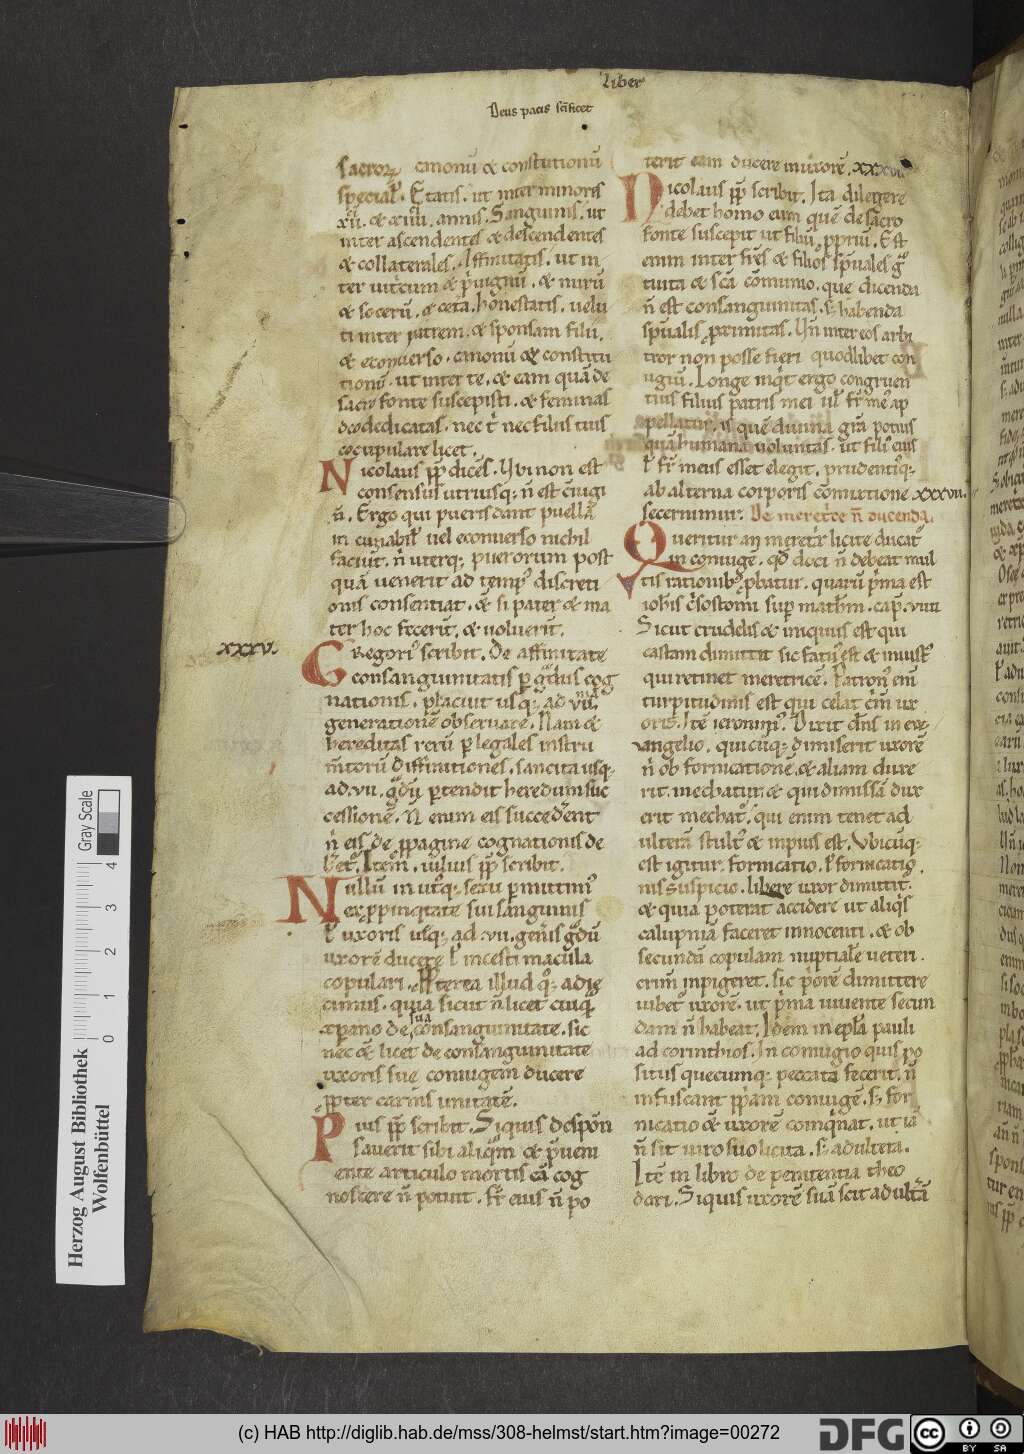 Liber
Deus pacis scificet
sacroꝝ. canonū & constitutionū
special'. Etatis. ut inter minoris
xii. & xiiii. annis. Sanguinis. ut
inter ascendentes & descendentes
& collaterales. Affinitatis. ut in-
ter vitricum & p'vignū. & nurū
& socerū. & cetā. honestatis. uelu
ti inter patrem. & sponsam filii.
& econuerso. canonū & constitu
tionū. ut inter te. & eam quā de
sacro fonte suscepisti. & feminas
deo dedicatas. nec t' nec filiis tuis
copulare licet.
Nicolaus pp̄ dicēs. Vbi non est
consensus utriusq; n̄ est c̄iugi
ū. Ergo qui pueris dant puellā
in cunabil' uel econuerso nichil
faciūt. n' uterq; puerorum post
quā uenerit ad temp' discreti
onis consentiat. & si pater & ma
ter hoc fecerūt. & uoluerūt.
xxxv.
Gregori' scribit. De affinitate
consanguinitatis p gͣdus cog
nationis. placuit usq; ad viiͣᵐ
generationē obseruare. Nam &
hereditas rerū p legales instru
m̄torū diffinitiones. sancita usq;
ad. vii. gͣdū. ptendit heredum suc
cessionē. N enim eis succederent
n' eis de ppagine cognationis de
b'et'. Item. iulius pp̄ scribit.
Nullū in ut'q; sexu pmittim'
ex ppinq̄tate sui sanguinis
l' uxoris usq; ad. vii. gen'is gͣdū
uxorē ducere l' incesti macula
copulari. Preterea illud q'q; adie
cimus. quia sicut n̄ licet cuiq̄
xpiano de sua consanguinitate. sic
nec & licet de consanguinitate
uxoris sue coniugem ducere
ppter carnis unitatē.
Pius pp̄ scribit. Siquis despōn
sauerit sibi aliq̄m & p'ueni
ente articulo mortis eā cog
noscere n̄ potuit. fr̄ eius n̄ po
terit eam ducere in uxorē. xxxvi
Nicolaus pp̄ scribit. Ita diligere
debet homo eum quē de sacro
fonte suscepit ut filiū ppriū. Est
enim inter fr̄es & filios sp̄uales gͣ
tuita & sc̄a cōmunio. que dicenda
n̄ est consanguinitas. s; habenda
sp̄ualis pximitas. Vn̄ inter eos arbi
tror non posse fieri quodlibet con
iugiū. Longe inq't ergo congruen
tius filius patris mei ul' fr̄ me' ap
pellatur. is quē diuina grā potius
quā humana uoluntas. ut fili' eius
l' fr̄ meus esset elegit. prudentiꝰq;
ab alterna corporis cōmixtione xxxvii.
secernimur. De meretce n̄ ducenda.
Queritur an meretr' licite ducat'
in coniugē. qd' doci n̄ debeat mul
tis rationib; pbatur. quarū p'ma est
ioh'is c'sostomi sup math'm. cap. viiii
Sicut crudelis & iniquus est qui
castam dimittit sic fatu' est & iniust'
qui retinet meretricē. Patron' enī
turpitudinis est qui celat c'm ux
oris. Itē ieronim'. Dixit dn̄s in eue-
angelio. quicūq; dimiserit uxorē
n' ob fornicationē. & aliam duxe
rit. mechatur. & qui dimissā dux
erit mechat'. qui enim tenet ad
ulterā stult' & inpius est. Vbicūq;
est igitur fornicatio. l' fornicatio
nis suspicio. libere uxor dimittit'.
& quia poterat accidere ut aliq's
calupniā faceret innocenti. & ob
secundā copulam nuptiale ueteri.
crim̄ inpigeret. sic p'orē dimittere
iubet' uxorē. ut p'ma uiuente secun
dam n̄ habeat. Idem in ep̄la pauli
ad corinthios. In coniugio quis po
situs quecumq; peccata fecerit. n̄
infuscant pp̄am coniugē. s; for
nicatio & uxorē coinq'nat. ut iā
n̄ sit uiro suo licita. s; adultera.
Itē in libro de penitentia theo
dori. Siquis uxorē suā scit adult'ā
Gray Scale
0 1 2 3 4
Herzog August Bibliothek
Wolfenbüttel
(c) HAB http://diglib.hab.de/mss/308-helmst/start.htm?image=00272
DFG
cc BY SA